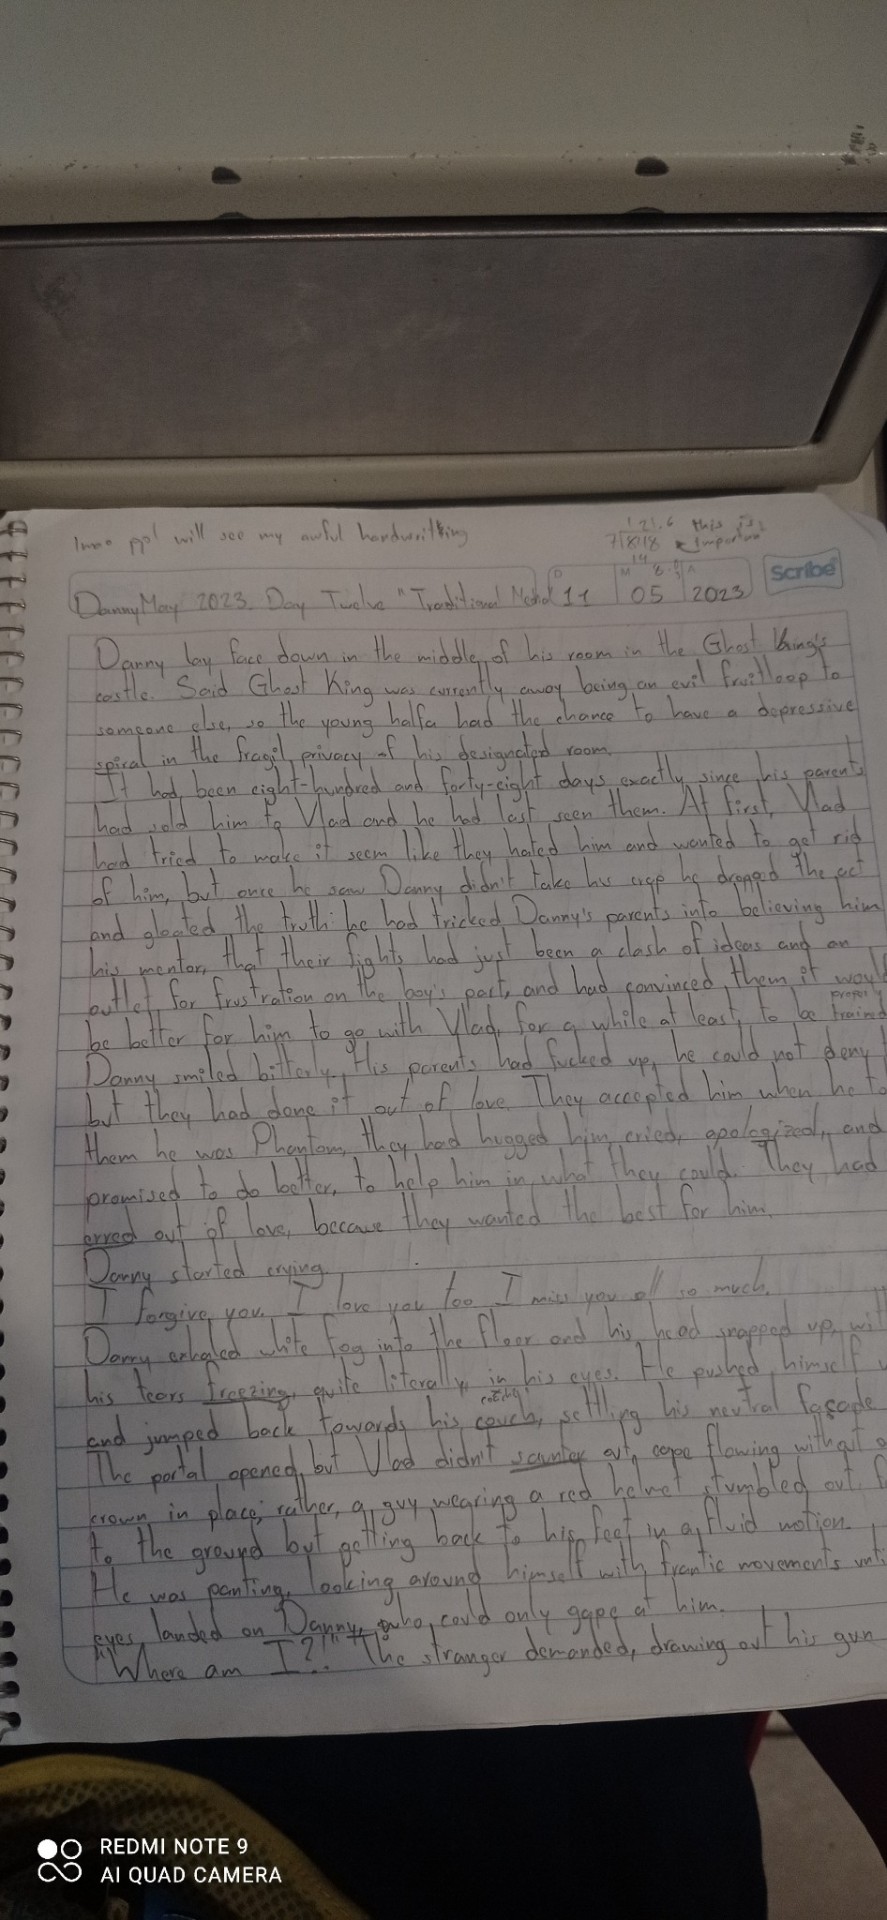 lmao ppl will see my awful handwritting
121.6 this is
7/848 important
Scribe
D M A
DannyMay 2023 Day Twelve "Traditional 11 05 2023
Danny lay face down in the middle of his room in the Ghost King's
castle. Said Ghost King was currently away being an evil fruitloop to
someone else, so the young halfa had the chance to have a depressive
spiral in the fragil privacy of his designated room.
It had been eight-hundred and forty-eight days exactly since his parents
had sold him to Vlad and he had last seen them. At first, Vlad
had tried to make it seem like they hated him and wanted to get rid
of him, but once he saw Danny didn't take his crap he dropped the act
and gloated the truth: he had tricked Danny's parents into believing him
his mentor, that their fights had just been a clash of ideas and an
outlet for frustration on the boy's part, and had convinced them it would
properly
be better for him to go with Vlad, for a while at least, to be trained
Danny smiled bitterly. His parents had fucked up, he could not deny
but they had done it out of love. They accepted him when he to
them he was Phantom, they had hugged him, cried, apologized, and
promised to do better, to help him in what they could. They had
erred out of love, because they wanted the best for him.
Danny started crying.
I forgive you. I love you too. I miss you all so much.
Danny exhaled white fog into the floor and his head snapped up, wi
his tears freezing, quite literally, in his eyes. He pushed himself u
and jumped back towards his couch, settling his neutral façade
The portal opened, but Vlad didn't saunter out, cape flowing without a
crown in place; rather, a guy wearing a red helmet stumbled out, f
to the ground but getting back to his feet in a fluid motion.
He was panting, looking around himself with frantic movements unti
eyes landed on Danny, who could only gape at him.
"Where am I?!" The stranger demanded, drawing out his gun
REDMI NOTE 9
AI QUAD CAMERA